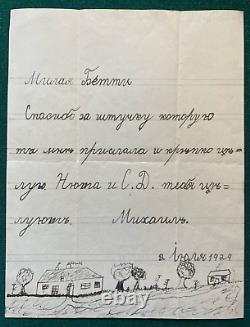 Милая Бетти
Спасибо за штучку которую
ты мнѣ прислала и крѣпко цѣ=
лую. Нюта и С.Д. тебя цѣ=
луютъ. Михаилъ.
2 Іюля 1929